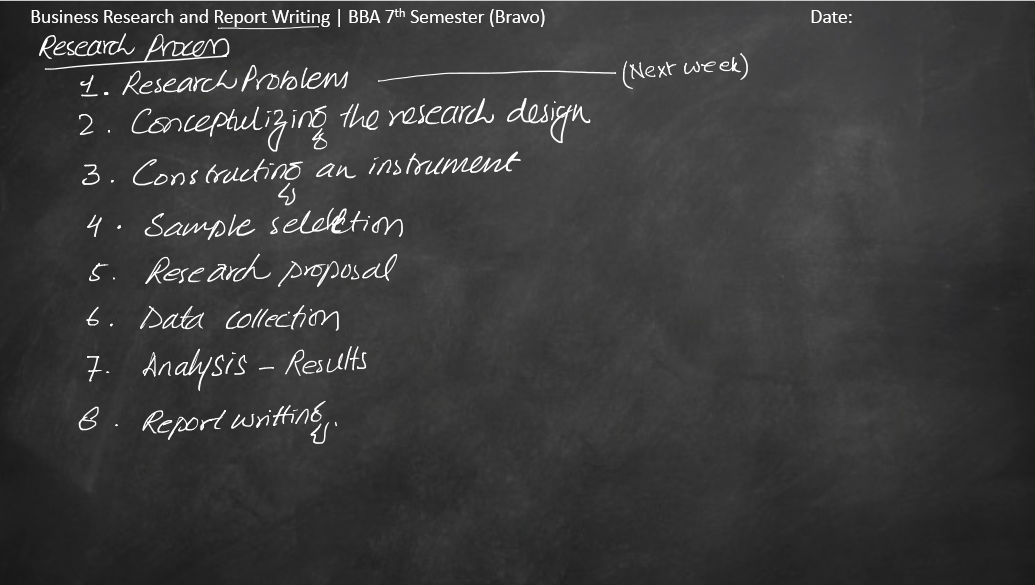 Business Research and Report Writing | BBA 7th Semester (Bravo) Date:
Research Process
1. Research Problem (Next week)
2. Conceptulizing the research design
3. Constructing an instrument
4. Sample selection
5. Research proposal
6. Data collection
7. Analysis - Results
8. Report writting.